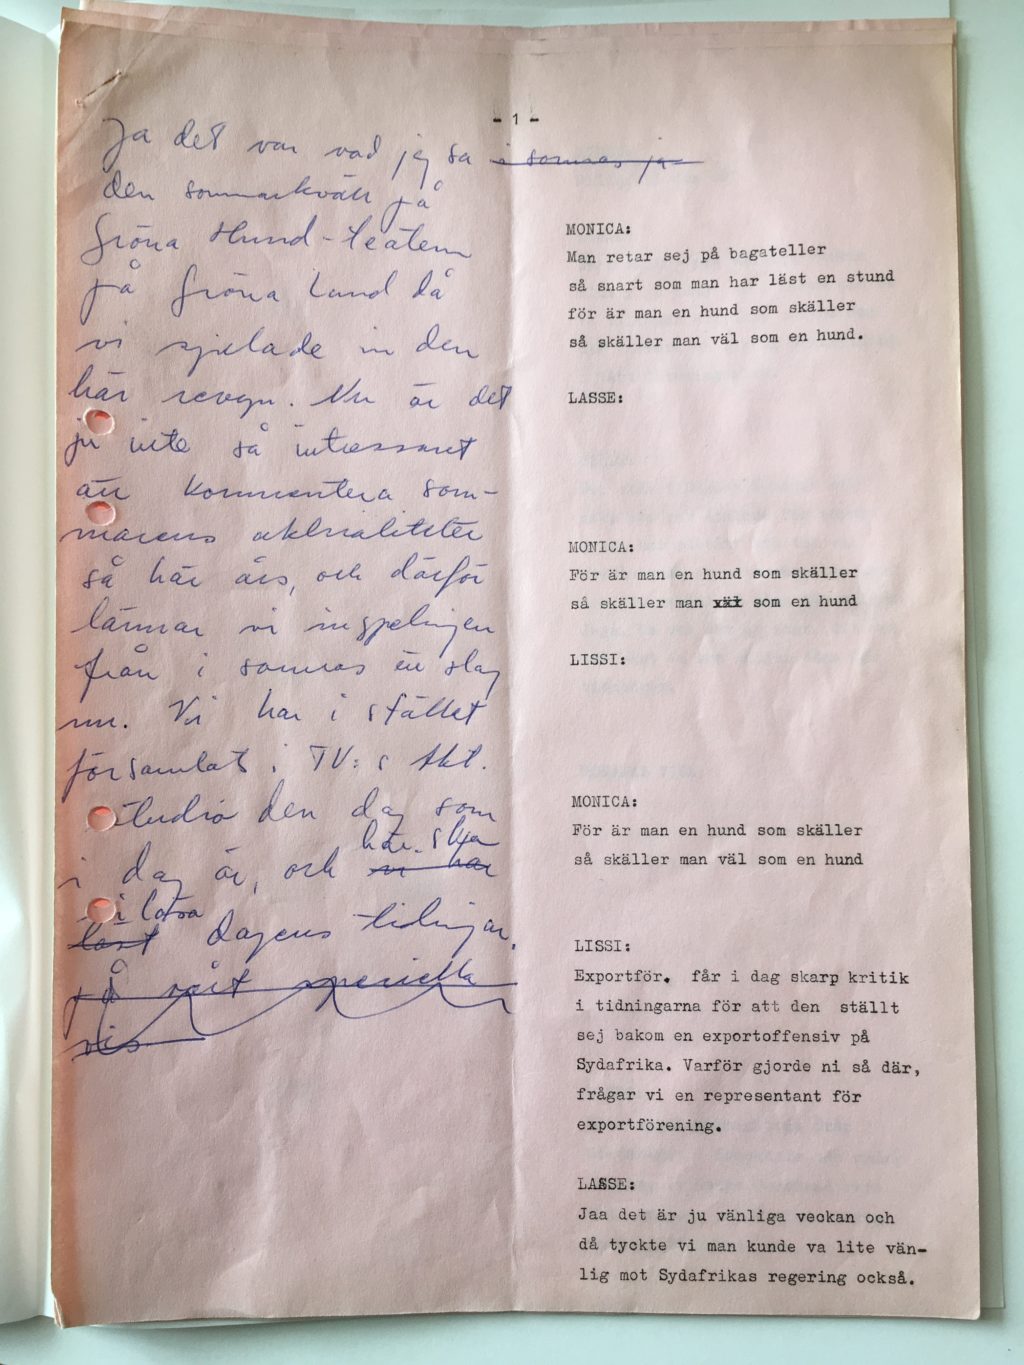 - 1 -
Ja det var vad jag sa i somras ja
den sommarkväll på
Gröna Hund-teatern
på Gröna Lund då
vi spelade in den
här revyn. Nu är det
ju inte så intressant
att kommentera som-
marens aktualiteter
så här års, och därför
lämnar vi inspelningen
från i somras en slag
nu. Vi har i stället
församlats i TV:s Akt.
studio den dag som
här. ska
i dag är, och vi har
vi låtsa
läst dagens tidningar.
på vårt speciella
vis
MONICA:
Man retar sej på bagateller
så snart som man har läst en stund
för är man en hund som skäller
så skäller man väl som en hund.
LASSE:
MONICA:
För är man en hund som skäller
så skäller man xäx som en hund
LISSI:
MONICA:
För är man en hund som skäller
så skäller man väl som en hund
LISSI:
Exportför. får i dag skarp kritik
i tidningarna för att den ställt
sej bakom en exportoffensiv på
Sydafrika. Varför gjorde ni så där,
frågar vi en representant för
exportförening.
LASSE:
Jaa det är ju vänliga veckan och
då tyckte vi man kunde va lite vän-
lig mot Sydafrikas regering också.